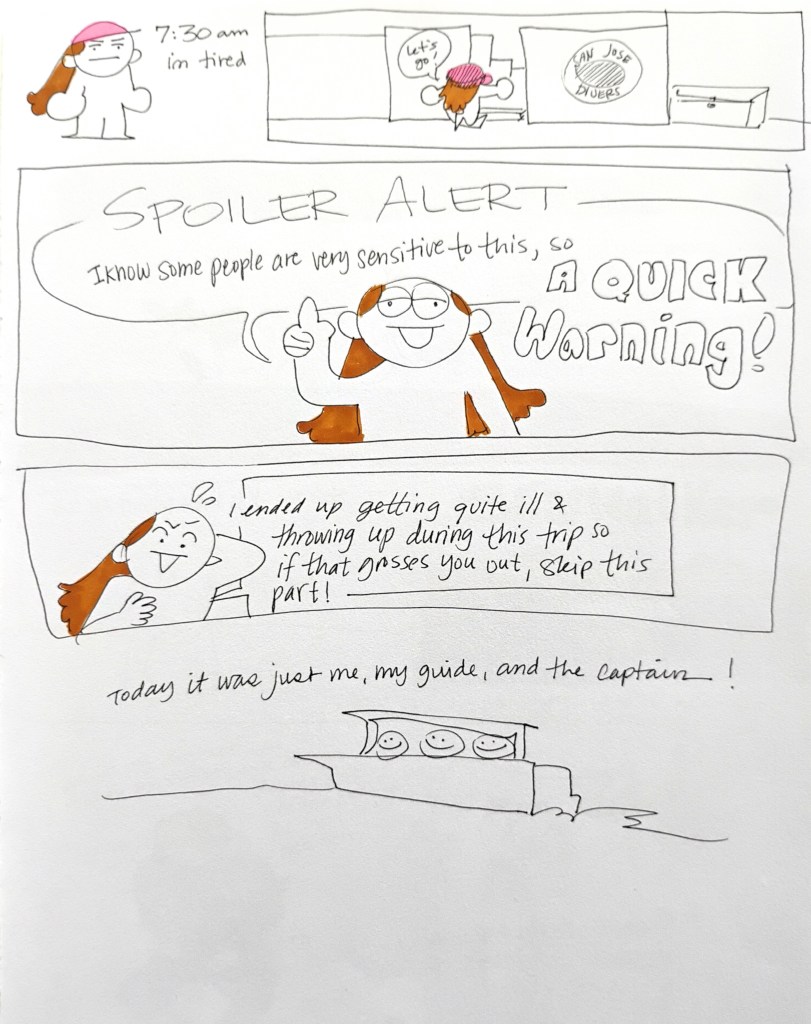 7:30 am
im tired
Let's
go!
SAN JOSE
DIVERS
SPOILER ALERT
I know some people are very sensitive to this, so
A QUICK
Warning!
I ended up getting quite ill &
throwing up during this trip so
if that grosses you out, skip this
part!
Today it was just me, my guide, and the captain!